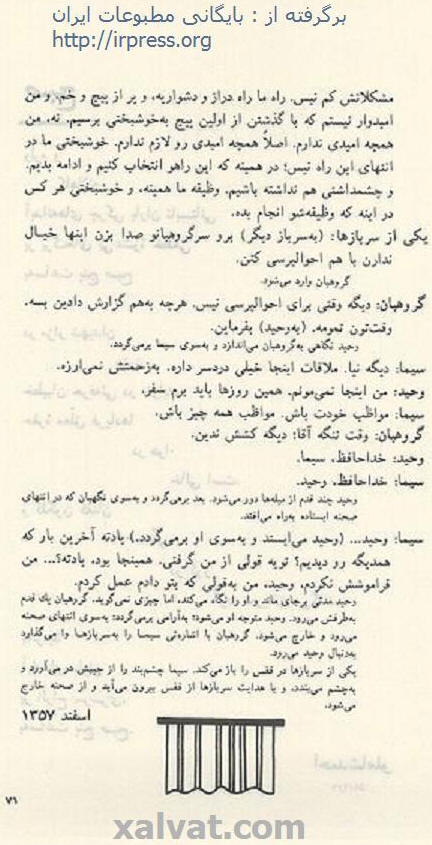 برگرفته از : بایگانی مطبوعات ایران
http://irpress.org
مشکلاتش کم نیس. راه ما راه دراز و دشواریه، و پر از پیچ و خم. و من
امیدوار نیستم که با گذشتن از اولین پیچ به‌خوشبختی برسیم. نه، من
همچه امیدی ندارم. اصلاً همچه امیدی رو لازم ندارم. خوشبختی ما در
انتهای این راه نیس؛ در همینه که این راهو انتخاب کنیم و ادامه بدیم.
و چشمداشتی هم نداشته باشیم. وظیفه ما همینه، و خوشبختی هر کس
در اینه که وظیفه‌شو انجام بده.
یکی از سربازها: (به‌سرباز دیگر) برو سرگروهبانو صدا بزن اینها خیال
ندارن با هم احوالپرسی کنن.
گروهبان وارد می‌شود.
گروهبان: دیگه وقتی برای احوالپرسی نیس. هرچه به‌هم گزارش دادین بسه.
وقت‌تون تمومه. (به‌وحید) بفرماین.
وحید نگاهی به‌گروهبان می‌اندازد و به‌سوی سیما برمی‌گردد.
سیما: دیگه نیا. ملاقات اینجا خیلی دردسر داره. به‌زحمتش نمی‌ارزه.
وحید: من اینجا نمی‌مونم. همین روزها باید برم سفر.
سیما: مواظب خودت باش. مواظب همه چیز باش.
گروهبان: وقت تنگه آقا؛ دیگه کشش ندین.
وحید: خداحافظ، سیما.
سیما: خداحافظ، وحید.
وحید چند قدم از میله‌ها دور می‌شود. بعد برمی‌گردد و به‌سوی نگهبان که در انتهای
صحنه ایستاده به‌راه می‌افتد.
سیما: وحید... (وحید می‌ایستد و به‌سوی او برمی‌گردد.) یادته آخرین بار که
همدیگه رو دیدیم؟ تو یه قولی از من گرفتی. همینجا بود. یادته؟... من
فراموشش نکردم، وحید. من به‌قولی که بتو دادم عمل کردم.
وحید مدتی برجای ماند و او را نگاه می‌کند، اما چیزی نمی‌گوید. گروهبان یك قدم
به‌طرفش می‌رود. وحید متوجه او می‌شود؛ به‌آرامی برمی‌گردد؛ به‌سوی انتهای صحنه
می‌رود و خارج می‌شود. گروهبان با اشاره‌ئی سیما را به‌سربازها وا می‌گذارد
به‌دنبال وحید می‌رود.
یکی از سربازها در قفس را باز می‌کند. سیما چشم‌بند را از جیبش در می‌آورد و
به‌چشم می‌بندد، و با هدایت سربازها از قفس بیرون می‌آید و از صحنه خارج
می‌شود.
اسفند ۱۳۵۷
۷۱
xalvat.com